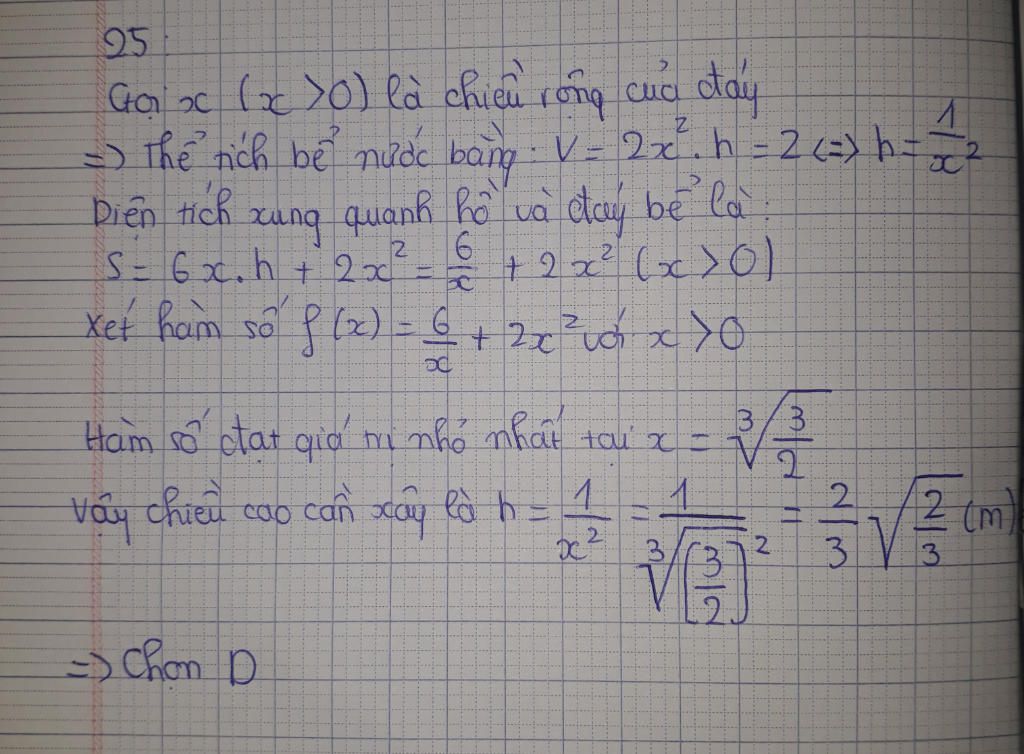 25:
Gọi x (x > 0) là chiều rộng của đáy
=> Thể tích bể nước bằng: V = 2x².h = 2 <=> h = 1/x²
Diện tích xung quanh hồ và đáy bể là:
S = 6x.h + 2x² = 6/x + 2x² (x > 0)
Xét hàm số f(x) = 6/x + 2x² với x > 0
Hàm số đạt giá trị nhỏ nhất tại x = ∛(3/2)
Vậy chiều cao cần xây là h = 1/x² = 1/∛[3/2]² = 2/3 √(2/3) (m)
=> Chọn D